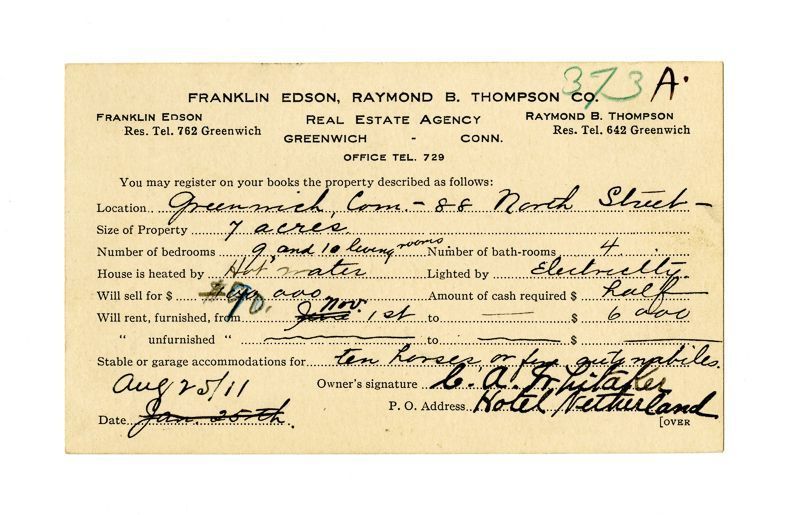 373 A.
FRANKLIN EDSON, RAYMOND B. THOMPSON CO.
FRANKLIN EDSON REAL ESTATE AGENCY RAYMOND B. THOMPSON
Res. Tel. 762 Greenwich GREENWICH - CONN. Res. Tel. 642 Greenwich
OFFICE TEL. 729
You may register on your books the property described as follows:
Location Greenwich, Conn - 88 North Street -
Size of Property 7 acres
Number of bedrooms 9 and 10 living rooms. Number of bath-rooms 4
House is heated by Hot water Lighted by Electricity.
Will sell for $ 90,000 Amount of cash required $ half
Will rent, furnished, from Nov. 1st to — $ 6000
" unfurnished " to $
Stable or garage accommodations for ten horses or five automobiles.
Aug 25/11 Owner's signature C. A. Whitaker
Date Jan. 25th. P. O. Address Hotel Netherland
[OVER